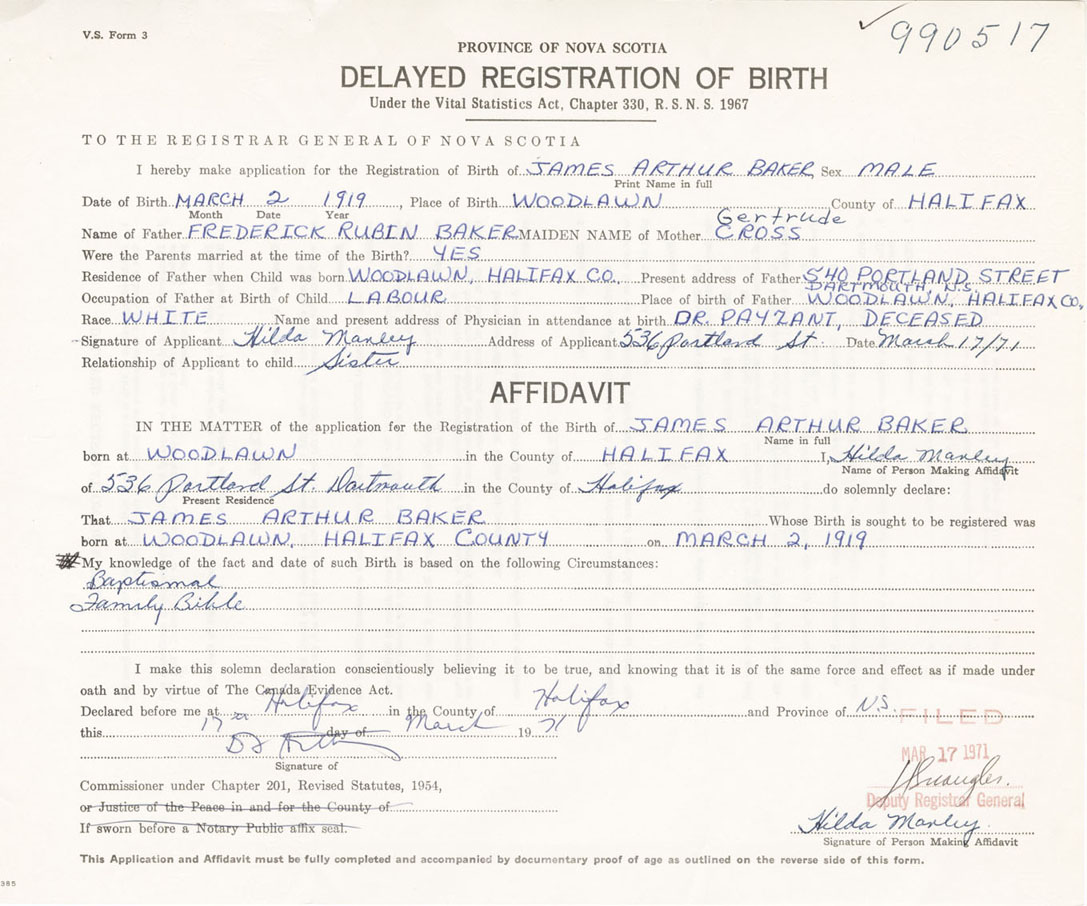 V.S. Form 3
990517
PROVINCE OF NOVA SCOTIA
DELAYED REGISTRATION OF BIRTH
Under the Vital Statistics Act, Chapter 330, R. S. N. S. 1967
TO THE REGISTRAR GENERAL OF NOVA SCOTIA
I hereby make application for the Registration of Birth of JAMES ARTHUR BAKER, Sex MALE
Print Name in full
Date of Birth MARCH 2 1919, Place of Birth WOODLAWN County of HALIFAX
Month Date Year
Gertrude
Name of Father FREDERICK RUBIN BAKER MAIDEN NAME of Mother CROSS
Were the Parents married at the time of the Birth? YES
Residence of Father when Child was born WOODLAWN, HALIFAX CO. Present address of Father 540 PORTLAND STREET
DARTMOUTH, N.S.
Occupation of Father at Birth of Child LABOUR Place of birth of Father WOODLAWN, HALIFAX CO,
Race WHITE Name and present address of Physician in attendance at birth DR. PAYZANT, DECEASED
Signature of Applicant Hilda Manley Address of Applicant 536 Portland St. Date March 17/71
Relationship of Applicant to child Sister
AFFIDAVIT
IN THE MATTER of the application for the Registration of the Birth of JAMES ARTHUR BAKER
Name in full
born at WOODLAWN in the County of HALIFAX I, Hilda Manley
Name of Person Making Affidavit
of 536 Portland St. Dartmouth in the County of Halifax do solemnly declare:
Present Residence
That JAMES ARTHUR BAKER Whose Birth is sought to be registered was
born at WOODLAWN, HALIFAX COUNTY on MARCH 2, 1919
My knowledge of the fact and date of such Birth is based on the following Circumstances:
Baptismal
Family Bible
I make this solemn declaration conscientiously believing it to be true, and knowing that it is of the same force and effect as if made under
oath and by virtue of The Canada Evidence Act.
Declared before me at Halifax in the County of Halifax and Province of N.S.
FILED
this 17th day of March 1971
MAR 17 1971
Signature of
Commissioner under Chapter 201, Revised Statutes, 1954,
Deputy Registrar General
or Justice of the Peace in and for the County of
Hilda Manley
If sworn before a Notary Public affix seal.
Signature of Person Making Affidavit
This Application and Affidavit must be fully completed and accompanied by documentary proof of age as outlined on the reverse side of this form.
385